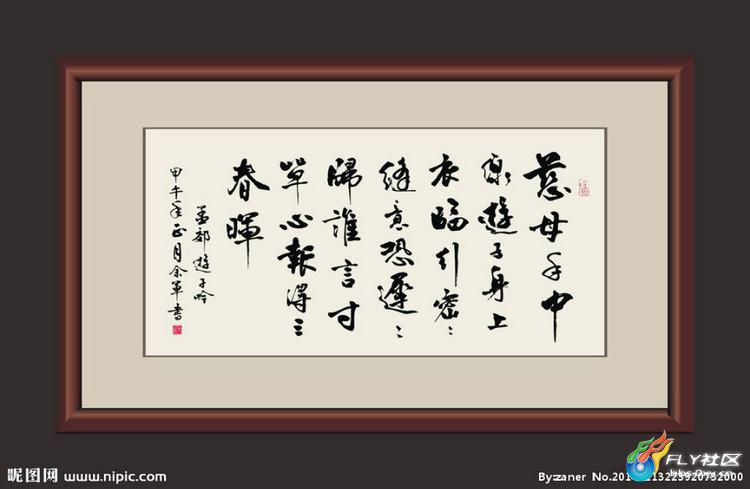 慈母手中
線遊子身上
衣臨行密〻
縫意恐遲〻
歸誰言寸
草心報得三
春暉
孟郊遊子吟
甲午年正月余軍書
昵图网 www.nipic.com
Byzaner
FLY社区